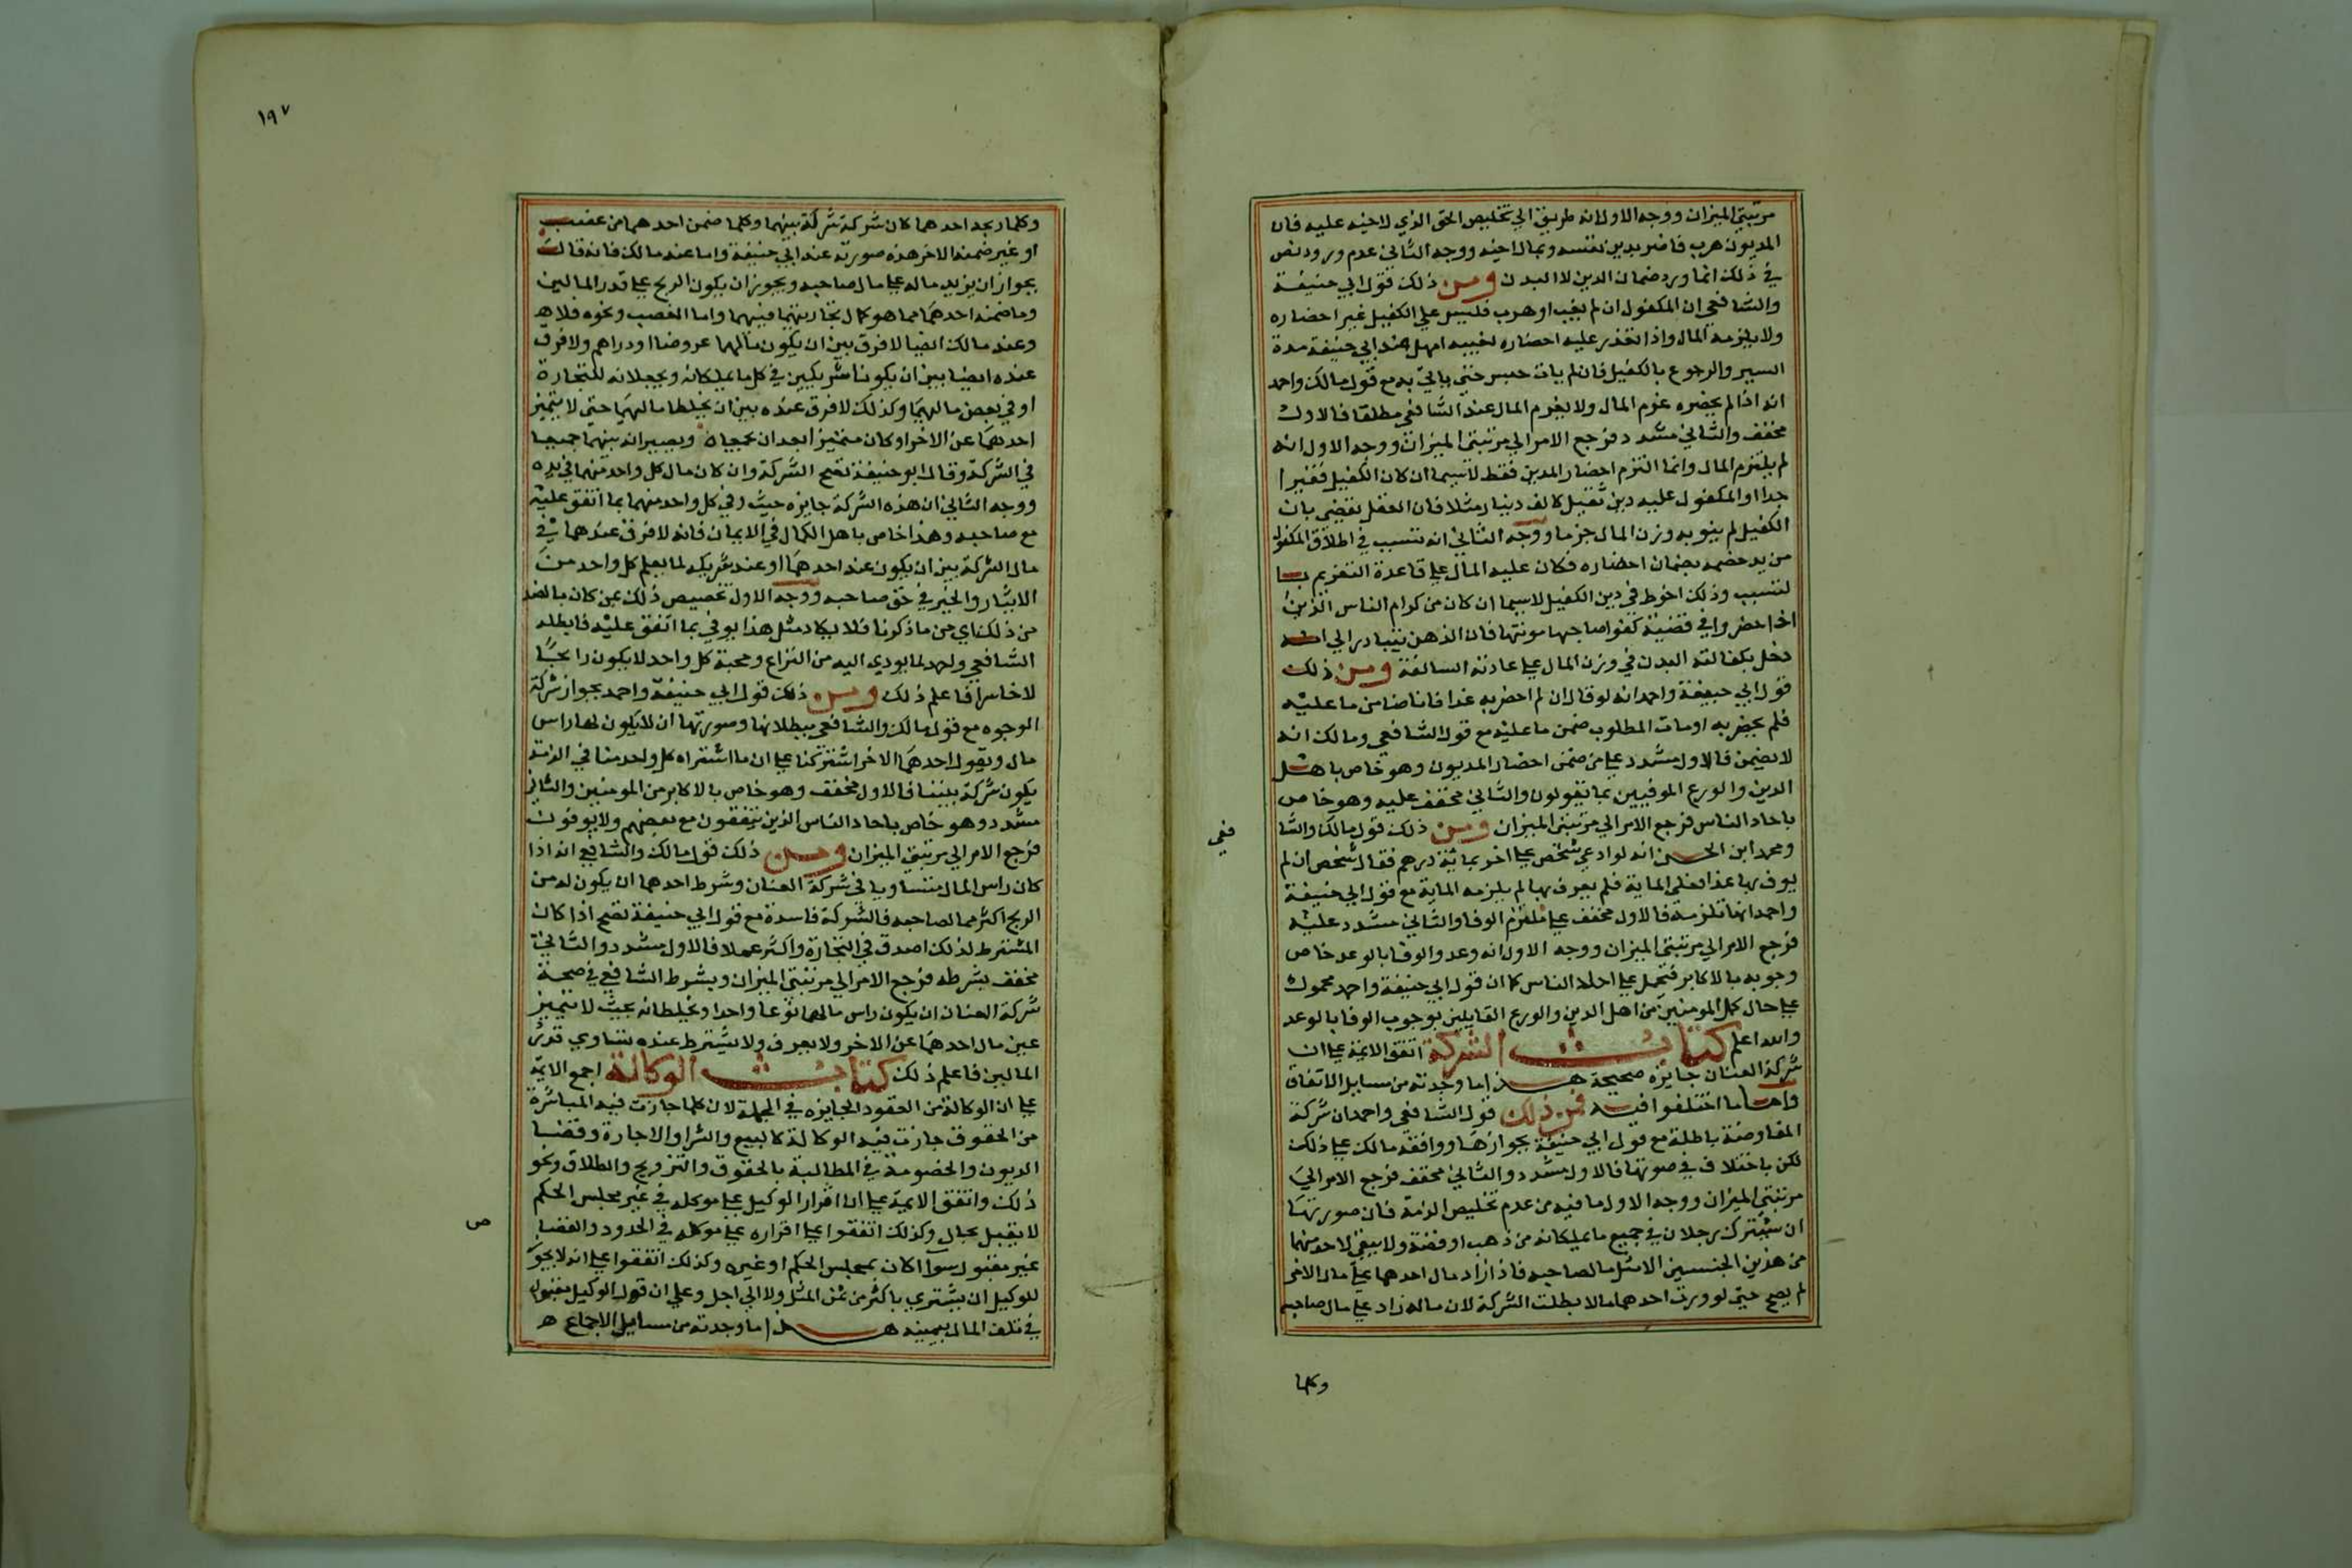 مرتبتي الميزان ووجه الاول انه طريق الي تخليص الحق الذي لاخيه عليه فان
المديون هرب فاضر بدين نفسه وبمال اخيه ووجه الثاني عدم ورود نص
في ذلك انما ورد ضمان الدين لا البدن ومن ذلك قول ابي حنيفة
والشافعي ان المكفول ان لم يغب او هرب فليس علي الكفيل غير احضاره
ولا يلزمه المال واذا تعذر عليه احضاره لغيبه امهل عند ابي حنيفة مدة
السير والرجوع بالكفيل فان لم يات حبس حتي ياتي به مع قول مالك واحمد
انه اذا لم يحضره غرم المال ولا يغرم المال عند الشافعي مطلقا فالاول
مخفف والثاني مشدد فرجع الامر الي مرتبتي الميزان ووجه الاول انه
لم يلتزم المال وانما التزم احضار المدين فقط لاسيما ان كان الكفيل فقيرا
جدا او المكفول عليه دين ثقيل كالف دينار مثلا فان العقل يقضي بان
الكفيل لم ينو به وزن المال جزما ووجه الثاني انه تسبب في اطلاق المكفول
من يد خصمه بضمان احضاره فكان عليه المال علي قاعدة التغريم با
لتسبب وذلك احوط في دين الكفيل لاسيما ان كان من كرام الناس الذين
اذا حضروا في قضية كفوا صاحبها مونتها فان الذهن يتبادر الي انه
دخل بكفالته البدن في وزن المال علي عادته السالفة ومن ذلك
قول ابي حنيفة واحمد انه لو قال ان لم احضر به غدا فانا ضامن ما عليه
فلم يحضر به او مات المطلوب ضمن ما عليه مع قول الشافعي ومالك انه
لا يضمن فالاول مشدد علي من ضمن احضار المديون وهو خاص باهل
الدين والورع الموفيين بما يقولون والثاني مخفف عليه وهو خاص
باحاد الناس فرجع الامر الي مرتبتي الميزان ومن ذلك قول مالك والشا
فعي
ومحمد ابن الحسن انه لو ادعي شخص علي اخر بماية درهم فقال شخص ان لم
يوف بها غدا فعلي الماية فلم يوف بها لم يلزمه الماية مع قول ابي حنيفة
واحمد انها تلزمه فالاول مخفف علي ملتزم الوفا والثاني مشدد عليه
فرجع الامر الي مرتبتي الميزان ووجه الاول انه وعد والوفا بالوعد خاص
وجوبه بالاكابر فتحمل علي احاد الناس كما ان قول ابي حنيفة واحمد محمول
علي حال كمل المومنين من اهل الدين والورع القايلين بوجوب الوفا بالوعد
والله اعلم كتاب الشركة اتفق الايمة علي ان
شركة العنان جايزه صحيحة هذا ما وجدته من مسايل الاتفاق
واما ما اختلفوا فيه فمن ذلك قول الشافعي واحمد ان شركة
المفاوضة باطلة مع قول ابي حنيفة بجوازها ووافقه مالك علي ذلك
لكن باختلاف في صورتها فالاول مشدد والثاني مخفف فرجع الامر الي
مرتبتي الميزان ووجه الاول ما فيه من عدم تخليص الذمة فان صورتها
ان يشترك رجلان في جميع ما يملكانه من ذهب او فضة ولا يبقي لاحد منهما
من هذين الجنسين الا مثل مالصاحبه فاذا زاد مال احدهما علي مال الاخر
لم يصح حتي لو ورث احدهما مالا بطلت الشركة لان ماله زاد علي مال صاحبه
وكلما
١٩٧
وكلما ربحه احدهما كان شركة شركة بينهما وكلما ضمن احدهما من غصب
او غير ضمنه الاخر هذه صورته عند ابي حنيفة واما عند مالك فانه قال
بجواز ان يزيد ماله علي مال صاحبه ويجوز ان يكون الربح علي قدر المالين
وما ضمنه احدهما مما هو كمال تجارتهما فبينهما واما الغصب ونحوه فلا هـ
وعند مالك ايضا لا فرق بين ان يكون مالهما عروضا او دراهم ولا فرق
عنده ايضا بين ان يكونا شريكين في كل ما يملكانه ويجعلانه للتجارة
او في بعض مالهما وكذلك لا فرق عنده بين ان يخلطا مالهما حتي لا يتميز
احدهما عن الاخر او كان متميزا بعد ان يجمعاه ويصيرانه بينهما جميعا
في الشركة وقال ابو حنيفة تصح الشركة وان كان مال كل واحد منهما في يده
ووجه الثاني ان هذه الشركة جايزه حيث وفي كل واحد منهما بما اتفق عليه
مع صاحبه وهذا خاص باهل الكمال في الايمان فانه لا فرق عندهما في
مال الشركة بين ان يكون عند احدهما او عند شريكه لما يعلم كل واحد من
الايثار والخير في حق صاحبه ووجه الاول تخصيص ذلك بمن كان بالضد
من ذلك اي من ما ذكرنا فلا يكاد مثل هذا يوفي بما اتفق عليه فابطله
الشافعي واحمد لما يودي اليه من النزاع ومحبة كل واحد ان يكون رابحا
لا خاسرا فاعلم ذلك ومن ذلك قول ابي حنيفة واحمد بجواز شركة
الوجوه مع قول مالك والشافعي ببطلانها وصورتها ان لا يكون لهما راس
مال ويقول احدهما الاخر اشتركنا علي ان ما اشتراه كل واحد منا في الذمة
يكون شركة بيننا فالاول مخفف وهو خاص بالاكابر من المومنين والثاني
مشدد وهو خاص باحاد الناس الذين يتفقون مع بعضهم ولا يوفون
فرجع الامر الي مرتبتي الميزان ومن ذلك قول مالك والشافعي انه اذا
كان راس المال متساويا في شركة العنان وشرط احدهما ان يكون له من
الربح اكثر مما لصاحبه فالشركة فاسدة مع قول ابي حنيفة تصح اذا كان
المشترط لذلك اصدق في التجارة واكثر عملا فالاول مشدد والثاني
مخفف بشرطه فرجع الامر الي مرتبتي الميزان ويشرط الشافعي في صحة
شركة العنان ان يكون راس مالهما نوعا واحدا ويخلطانه بحيث لا يتميز
عين مال احدهما عن الاخر ولا يعرف ولا يشترط عنده تساوي قدر
المالين فاعلم ذلك كتاب الوكالة اجمع الايمة
علي ان الوكالة من العقود الجايزه في الجملة لان كلما جازت فيه المباشرة
من الحقوق جازت فيه الوكالة كالبيع والشرا والاجارة وقضا
الديون والخصومة في المطالبة بالحقوق والتزويج والطلاق ونحو
ذلك واتفق الايمة علي ان اقرار الوكيل علي موكله في غير مجلس الحكم
لا يقبل بحال وكذلك اتفقوا علي اقراره علي موكله في الحدود والقصا
ص
غير مقبول سوا اكان بمجلس الحكم او غيره وكذلك اتفقوا علي انه لا يجوز
للوكيل ان يشتري باكثر من ثمن المثل ولا الي اجل وعلي ان قول الوكيل مقبول
في تلف المال بيمينه هذا ما وجدته من مسايل الاجماع هـ